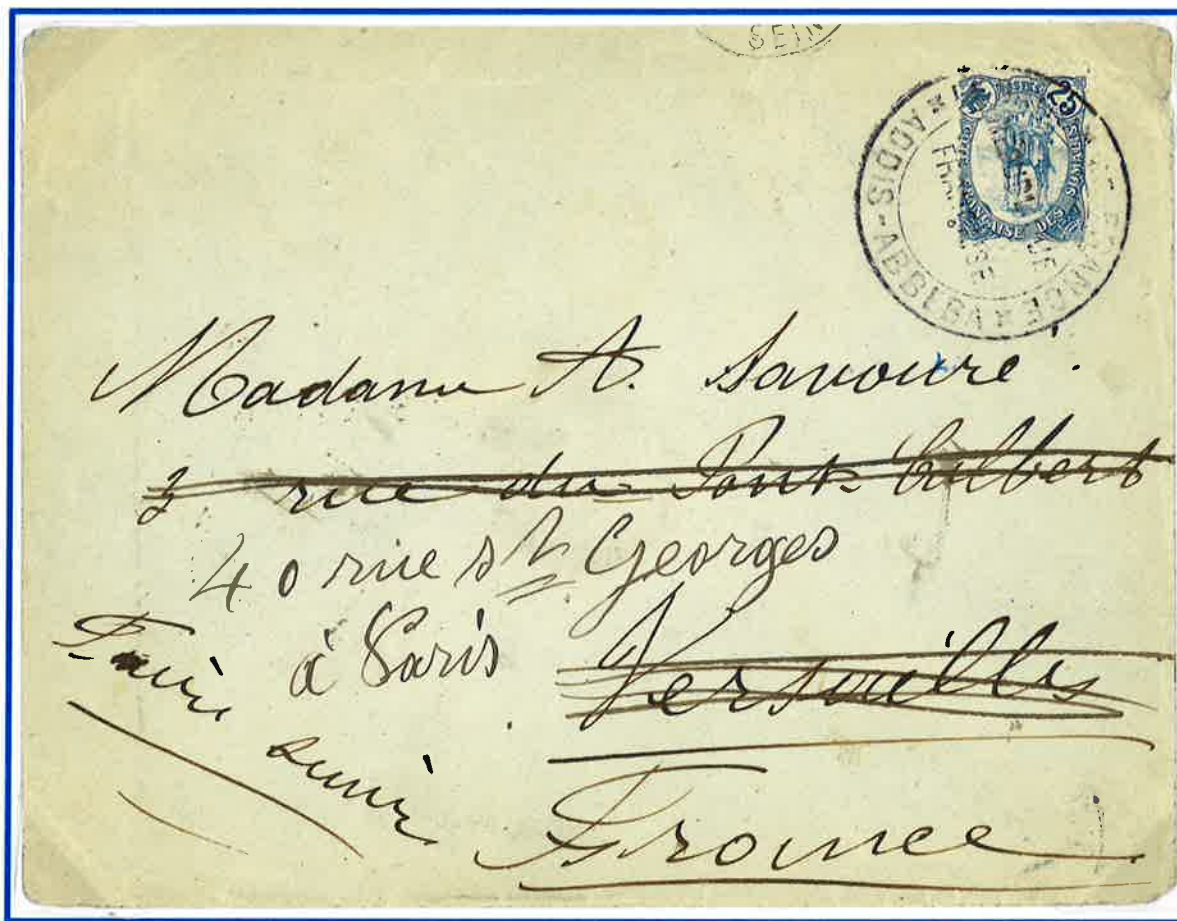 SEIN
25
POSTES
★ ADDIS-ABBEBA ★ FRANCE ★
Madame A. Savouré.
3 rue du Pont Colbert
40 rue St Georges
à Paris
Versailles
Faire
suivre
France